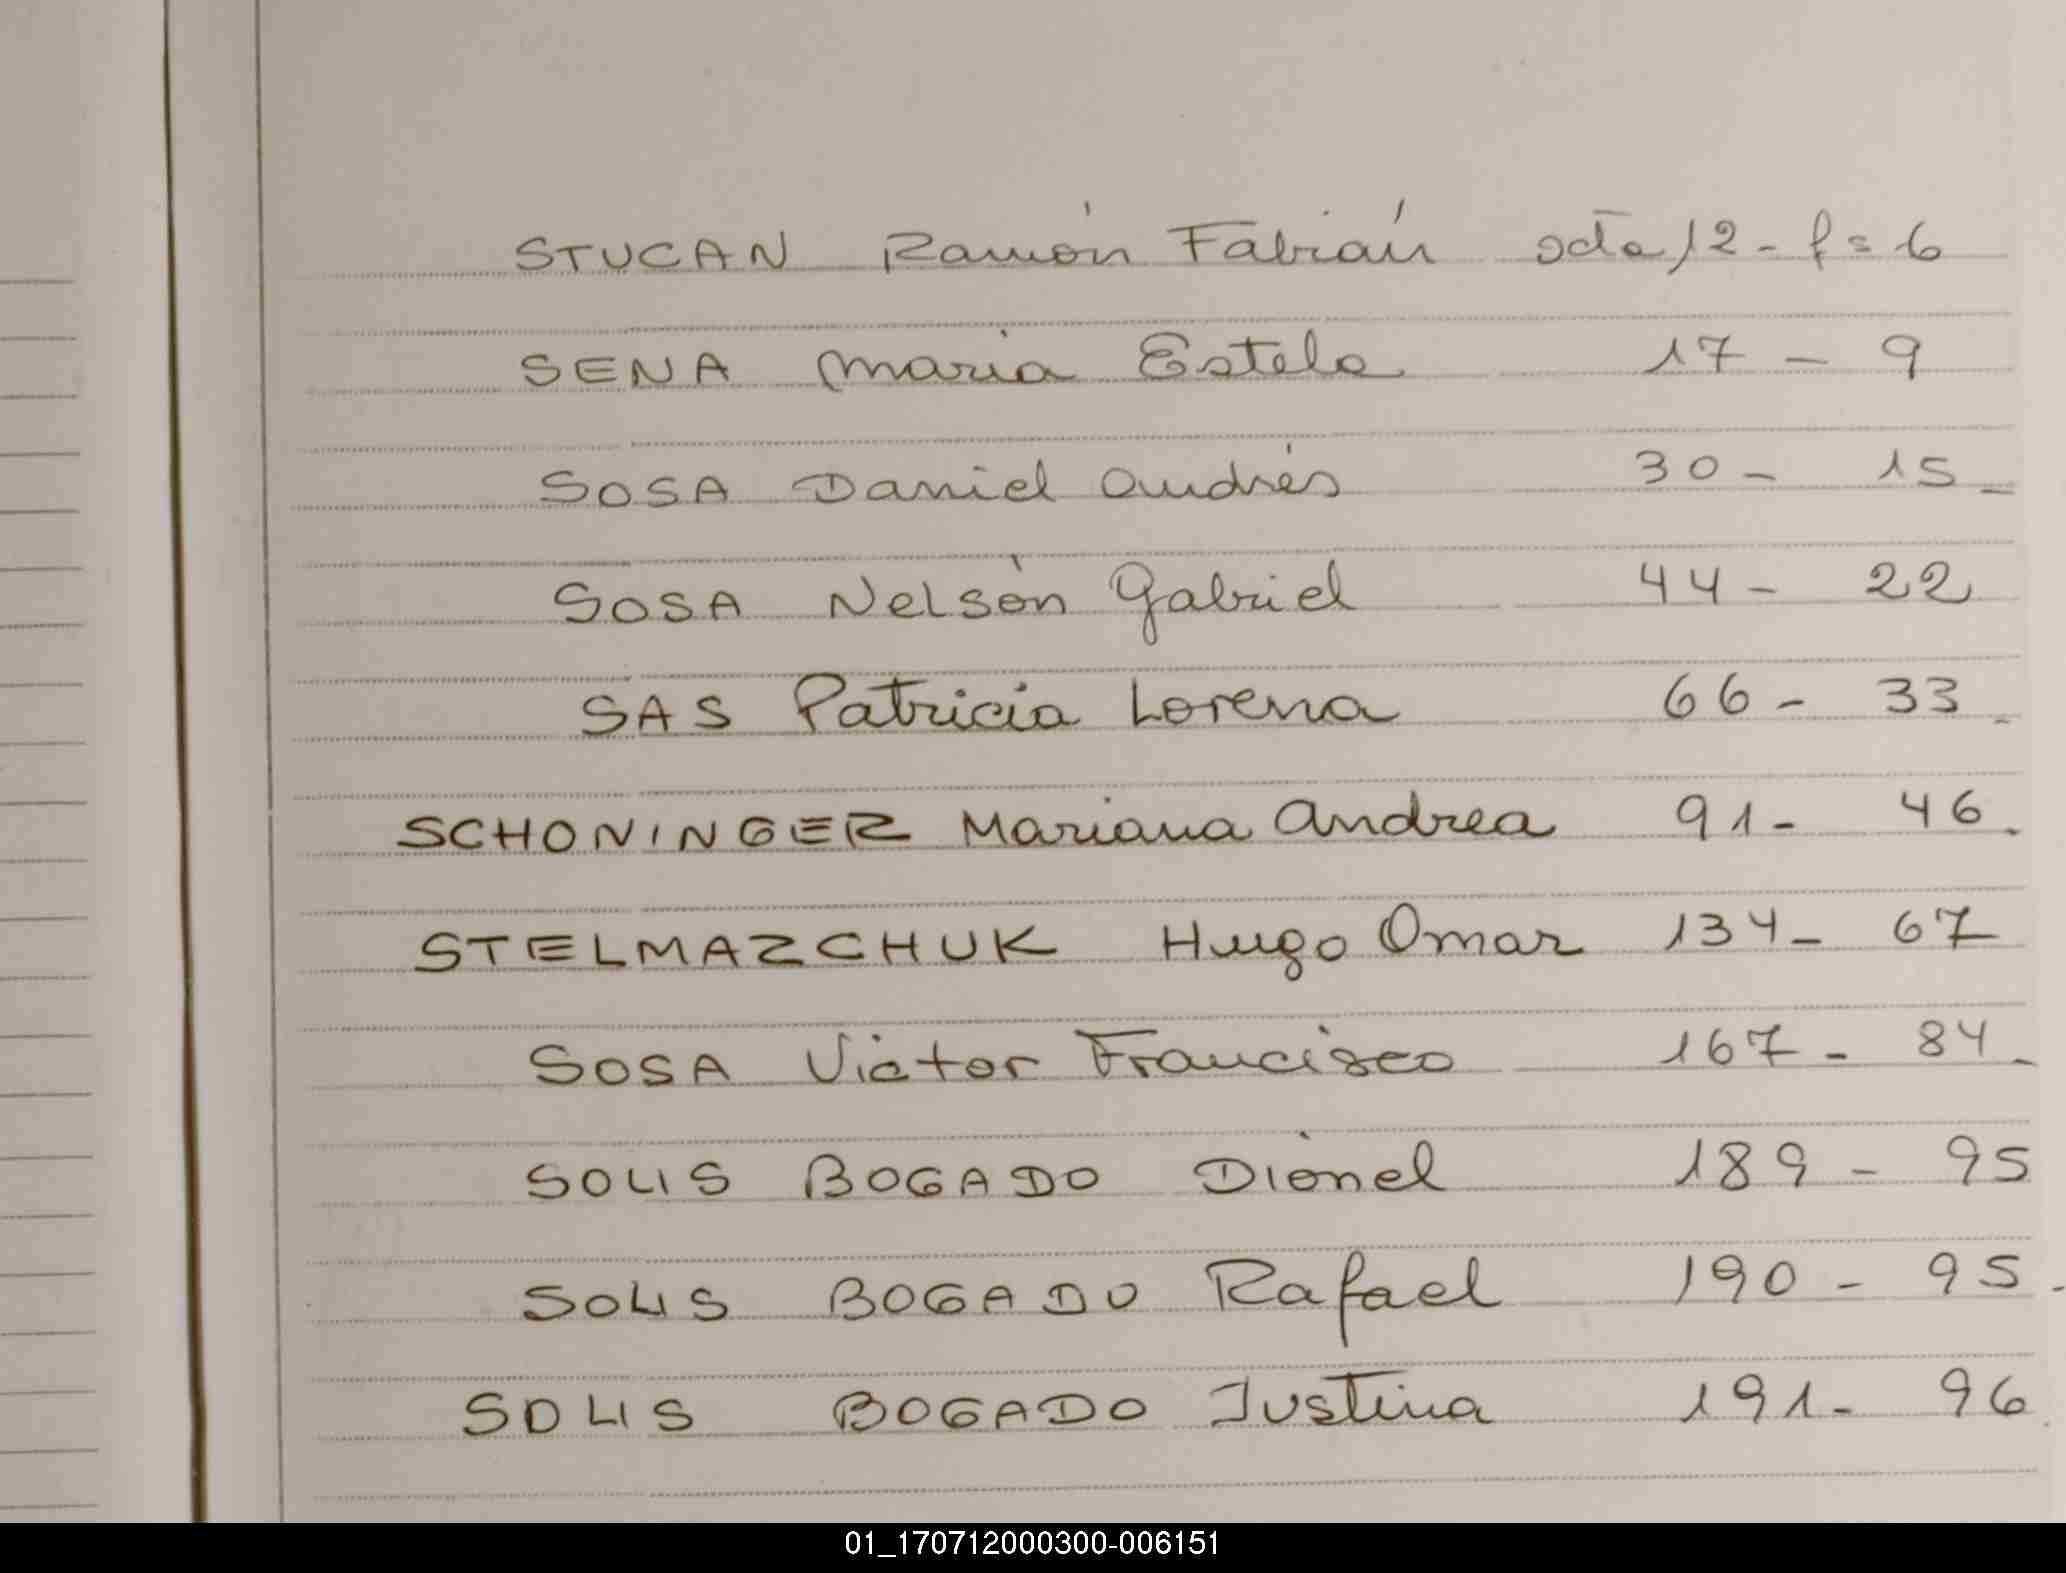 STUCAN Ramón Fabián acta 12 - fº 6
SENA Maria Estela 17 - 9
SOSA Daniel Andrés 30 - 15 -
SOSA Nelsón Gabriel 44 - 22
SAS Patricia Lorena 66 - 33 -
SCHONINGER Mariana Andrea 91 - 46 -
STELMAZCHUK Hugo Omar 134 - 67
SOSA Victor Francisco 167 - 84 -
SOLIS BOGADO Dionel 189 - 95
SOLIS BOGADO Rafael 190 - 95 -
SOLIS BOGADO Justina 191 - 96
01_170712000300-006151